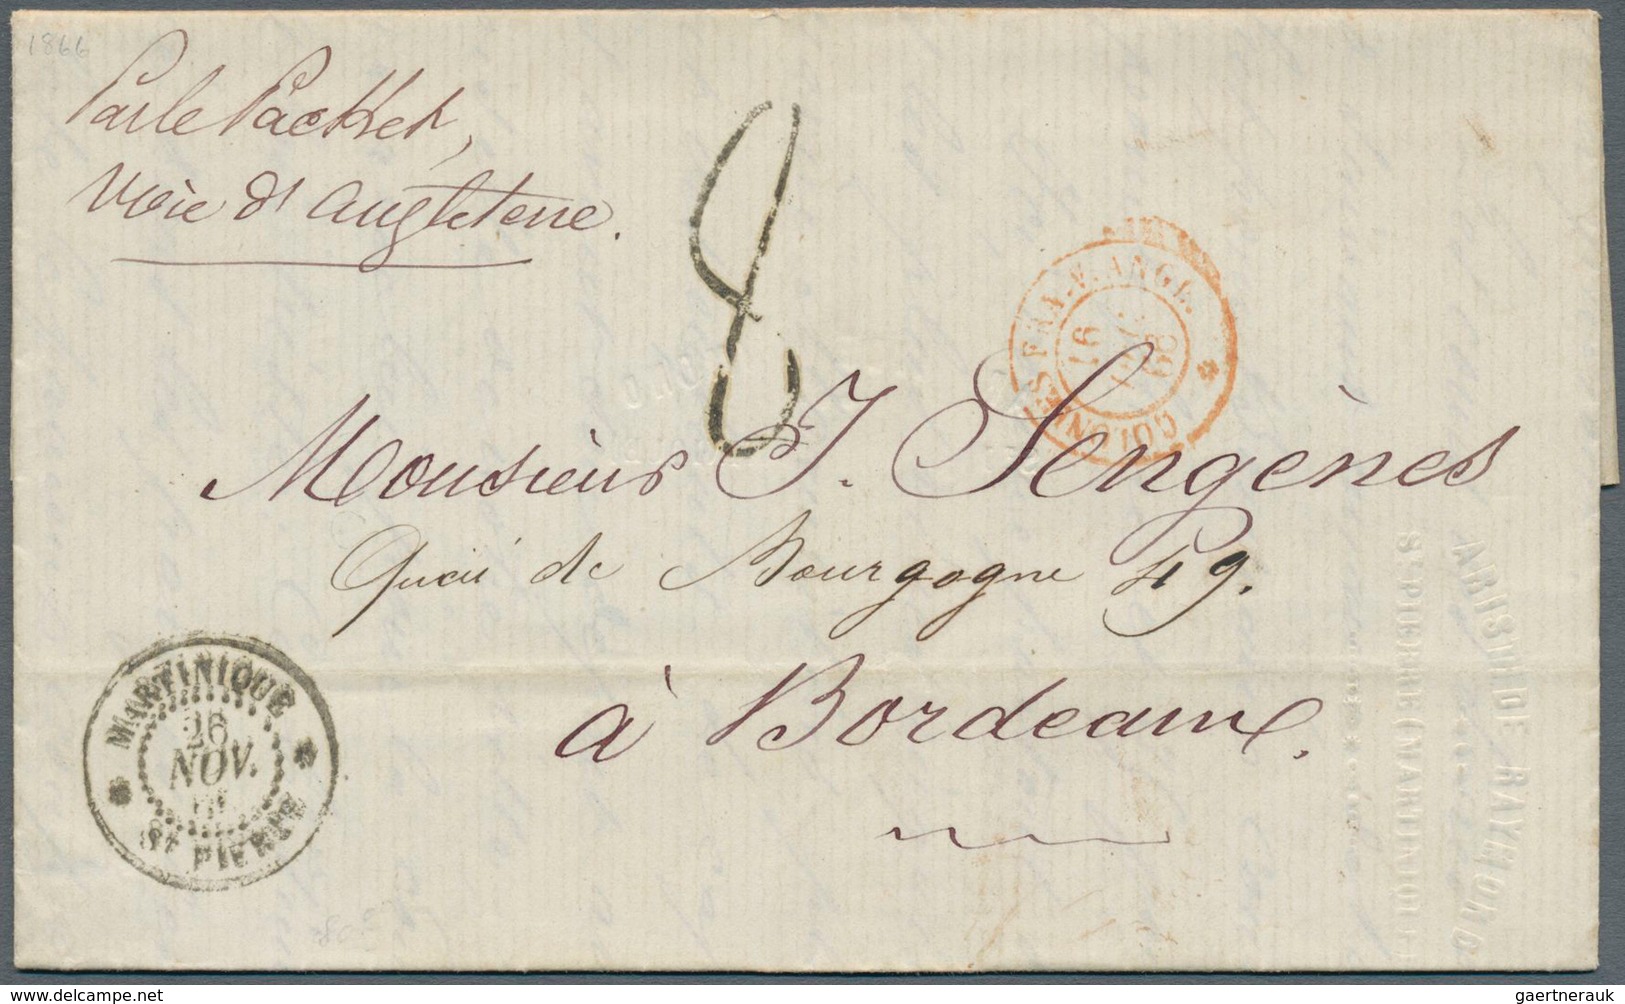 1866
Par le Packet,
voie d'angleterre.
8
COLONIES FRA. V. ANGL.
16
66
Monsieur J. Sengènes
Quai de Bourgogne 49.
à Bordeaux.
MARTINIQUE
26
NOV.
ST PIERRE
ST PIERRE (MARTINIQUE)
DE RAYMOND
gaertnerauk @ delcampe.net